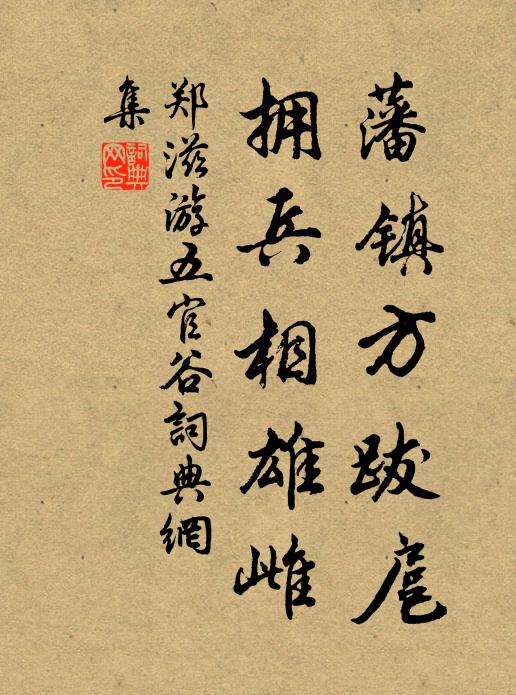 藩镇方跋扈
拥兵相雄雌
郑滋游五官谷詞典網
集
詞典网印